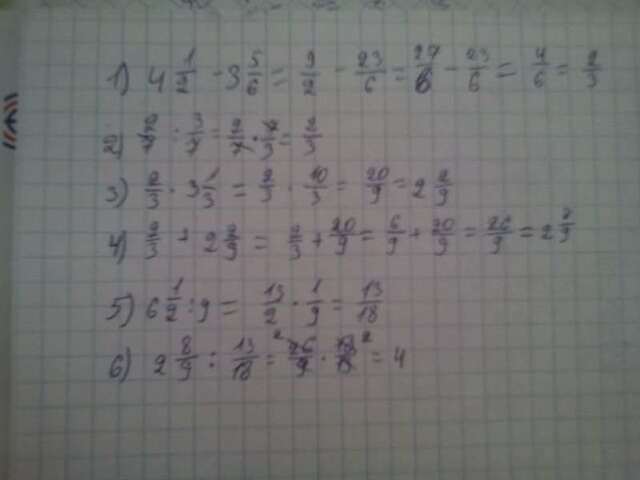 1) 4 1/2 - 3 5/6 = 9/2 - 23/6 = 27/6 - 23/6 = 4/6 = 2/3
2) 2/7 : 3/7 = 2/7 · 7/3 = 2/3
3) 2/3 · 3 1/3 = 2/3 · 10/3 = 20/9 = 2 2/9
4) 2/3 + 2 2/9 = 2/3 + 20/9 = 6/9 + 20/9 = 26/9 = 2
5) 6 1/2 : 9 = 13/2 · 1/9 = 13/18
6) 2 8/9 : 13/18 = 26/9 · 18/13 = 4